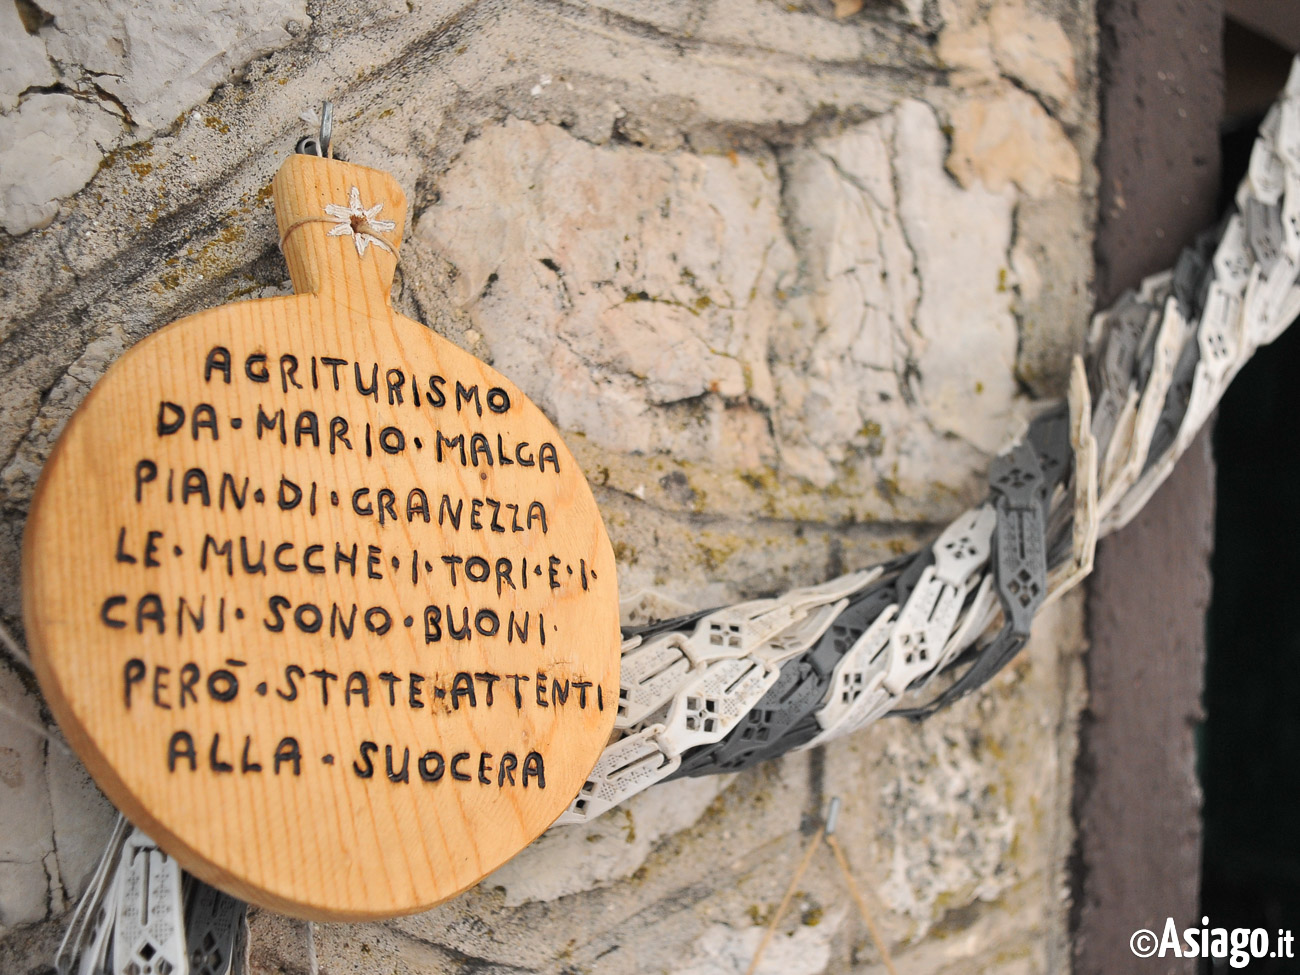 AGRITURISMO
DA·MARIO·MALGA
PIAN·DI·GRANEZZA
LE·MUCCHE·I·TORI·E·I·
CANI·SONO·BUONI·
PERÒ·STATE·ATTENTI
ALLA·SUOCERA
©Asiago.it